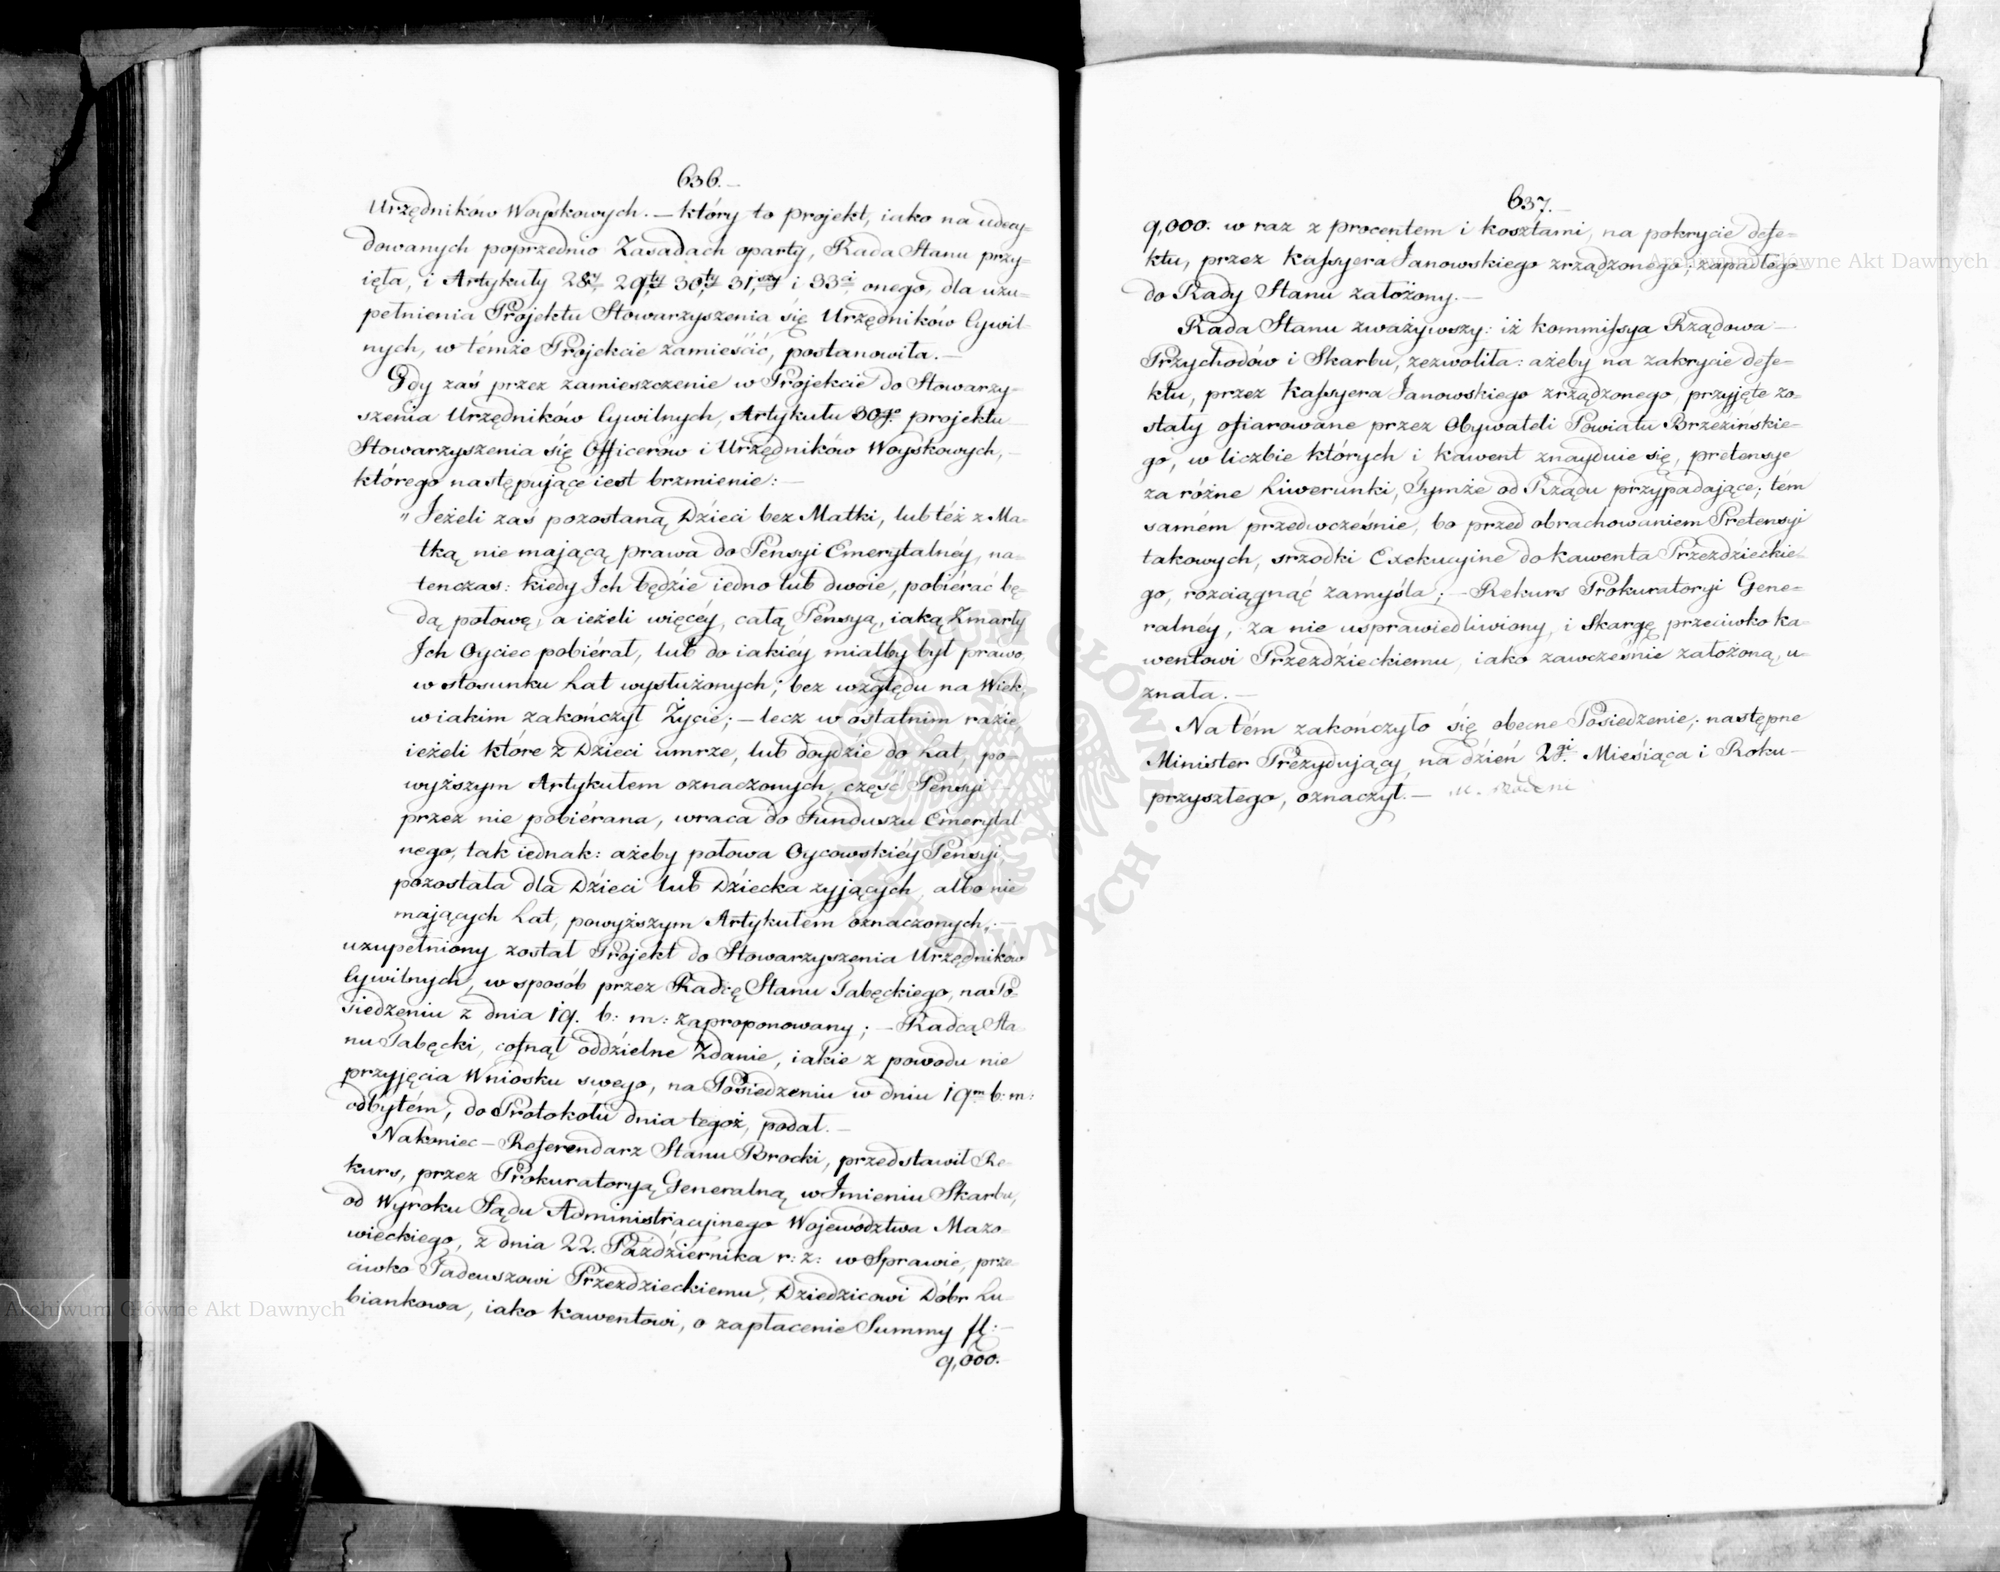 636.
Urzędników Woyskowych. — który to projekt, iako na udecy-
dowanych poprzednio Zasadach oparty, Rada Stanu przy-
ięła, i Artykuły 28y 29ty 30ty 31,szy i 33ci onego, dla uzu-
pełnienia Projektu Stowarzyszenia się Urzędników Cywil-
nych, w témże Projekcie zamieścić, postanowiła. —
Gdy zaś przez zamieszczenie w Projekcie do Stowarzy-
szenia Urzędników Cywilnych, Artykułu 30go projektu
Stowarzyszenia się Officerów i Urzędników Woyskowych, —
którego następujące iest brzmienie: —
„ Jeżeli zaś pozostaną Dzieci bez Matki, lub téż z Ma-
tką nie mającą prawa do Pensyi Emerytalnéy, na-
tenczas: kiedy Ich będzie iedno lub dwoie, pobiérać bę-
dą połowę; a ieżeli więcéy, całą Pensyą, iaką Zmarły
Ich Oyciec pobiérał, lub do iakiéy miałby był prawo,
w stosunku Lat wysłużonych; bez względu na Wiek,
w iakim zakończył Życie; — lecz w ostatnim razie,
ieżeli które z Dzieci umrze, lub doydzie do Lat, po-
wyższym Artykułem oznaczonych, część Pensyi
przez nie pobiérana, wraca do Funduszu Emerytal
nego, tak iednak: ażeby połowa Oycowskiéy Pensyi,
pozostała dla Dzieci lub Dziecka żyjących, albo nie
mających Lat, powyższym Artykułem oznaczonych; —
uzupełniony został Projekt do Stowarzyszenia Urzędników
Cywilnych, w sposób przez Radcę Stanu Tabęckiego, na Po-
siedzeniu z dnia 19. b: m: zaproponowany; — Radca Sta-
nu Tabęcki, cofnął oddzielne Zdanie, iakie z powodu nie
przyjęcia Wniosku swego, na Posiedzeniu w dniu 19m b: m:
odbytém, do Protokołu dnia tegoż, podał. —
Nakoniec — Referendarz Stanu Brocki, przedstawił Re-
kurs, przez Prokuratoryą Generalną, w Imieniu Skarbu,
od Wyroku Sądu Administracyjnego Województwa Mazo-
wieckiego, z dnia 22. Października r: z: w Sprawie, prze-
ciwko Tadeuszowi Przezdzieckiemu, Dziedzicowi Dóbr Lu-
biankowa, iako kawentowi, o zapłacenie Summy fl: —
9,000.
637.
9,000. w raz z procentem i kosztami, na pokrycie defe-
ktu, przez Kassyera Janowskiego zrządzonego; zapadłego
do Rady Stanu założony. —
Rada Stanu zważywszy: iż Kommissya Rządowa —
Przychodów i Skarbu, zezwoliła: ażeby na zakrycie defe-
ktu, przez Kassyera Janowskiego zrządzonego, przyjęte zo-
stały ofiarowane przez Obywateli Powiatu Brzezińskie-
go, w liczbie których i kawent znayduie się, pretensye
za różne Liwerunki, Tymże od Rządu przypadające; tém
samém przedwcześnie, bo przed obrachowaniem Pretensyi
takowych, srzodki Exekucyine do kawenta Przezdzieckie-
go, rozciągnąć zamyśla; — Rekurs Prokuratoryi Gene-
ralnéy, za nie usprawiedliwiony, i Skargę przeciwko ka-
wentowi Przezdzieckiemu, iako zawcześnie założoną, u-
znała. —
Na tém zakończyło się obecne Posiedzenie; następne
Minister Prezydujący, na dzień 2gi. Miesiąca i Roku —
przyszłego, oznaczył. —
Archiwum Główne Akt Dawnych
Archiwum Główne Akt Dawnych